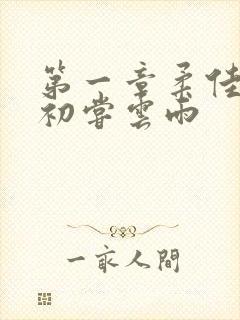 第一章柔佳
初嘗雲雨
一家人間